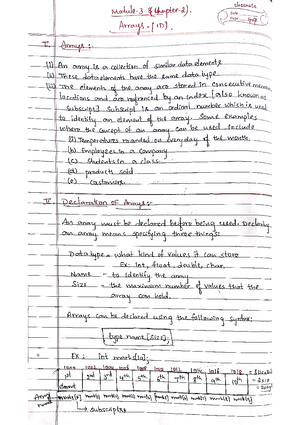 Module-3 (Chapter-2).
Arrays-[1D]
classmate
Date
Page
I. Arrays:
(i) An array is a collection of similar data elements
(ii) These data elements have the same data type
(iii) The elements of the array are stored in consecutive memory
locations and are referenced by an index [also known as
subscript]. Subscript is an ordinal number which is used
to identify an element of the array. Some examples
where the concept of an array can be used include
(a) Temperatures recorded on everyday of the month.
(b) Employees in a company
(c) Students in a class
(d) products sold
(e) customers.
II. Declaration of Arrays:-
An array must be declared before being used. Declaring
an array means specifying three things:
Data type - what kind of values it can store
Ex: Int, float, double, char.
Name - to identify the array
Size - the maximum number of values that the
array can hold.
Arrays can be declared using the following syntax:
type name[size];
Ex: int marks[10];
1000 1002 1004 1006 1008 1010 1012 1014 1016 1018
1st 2nd 3rd 4th 5th 6th 7th 8th 9th 10th
Array name
subscripts